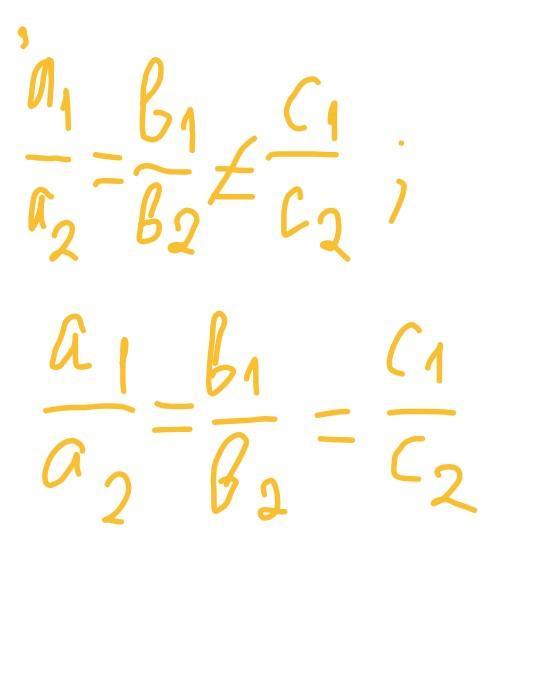 a₁/a₂ = b₁/b₂ ≠ c₁/c₂ ;
a₁/a₂ = b₁/b₂ = c₁/c₂